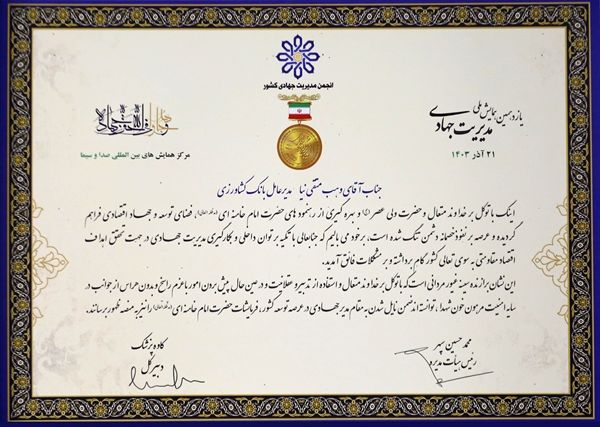 انجمن مدیریت جهادی کشور
یازدهمین همایش ملی
مدیریت جهادی
۲۱ آذر ۱۴۰۳
مرکز همایش های بین المللی صدا و سیما
جناب آقای وهب متقی نیا مدیرعامل بانک کشاورزی
اینک با توکل بر خداوند متعال و حضرت ولی عصر (عج) و بهره گیری از رهنمود های حضرت امام خامنه ای، فضای توسعه و جهاد اقتصادی فراهم
گردیده و عرصه بر نفوذ خصمانه دشمن تنگ شده است، برخود می بالیم که جنابعالی با تکیه بر توان داخلی و بکارگیری مدیریت جهادی در جهت تحقق اهداف
اقتصاد مقاومتی به سوی تعالی کشور گام برداشته و بر مشکلات فائق آمدید.
این نشان برازنده سینه غیور مردانی است که با توکل بر خداوند متعال و استفاده از تدبیر و عقلانیت و در عین حال پیش بردن امور با عزم راسخ و بدون هراس از جوانب در
سایه امنیت مرهون خون شهدا، توانسته اند ضمن نایل شدن به مقام مدیر جهادی در عرصه توسعه کشور، فرمایشات حضرت امام خامنه ای را نیز به منصه ظهور برسانند.
محمد حسین سپهر
رئیس هیأت مدیره
کاوه پزشک
دبیر کل